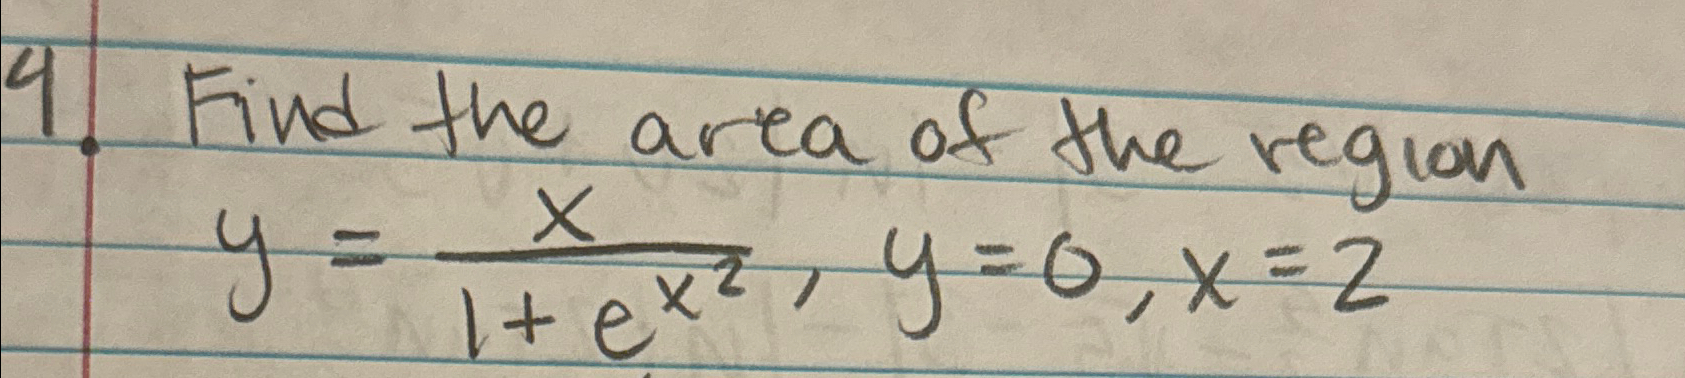 9. Find the area of the region
y = x/(1+e^(x^2)), y=0, x=2